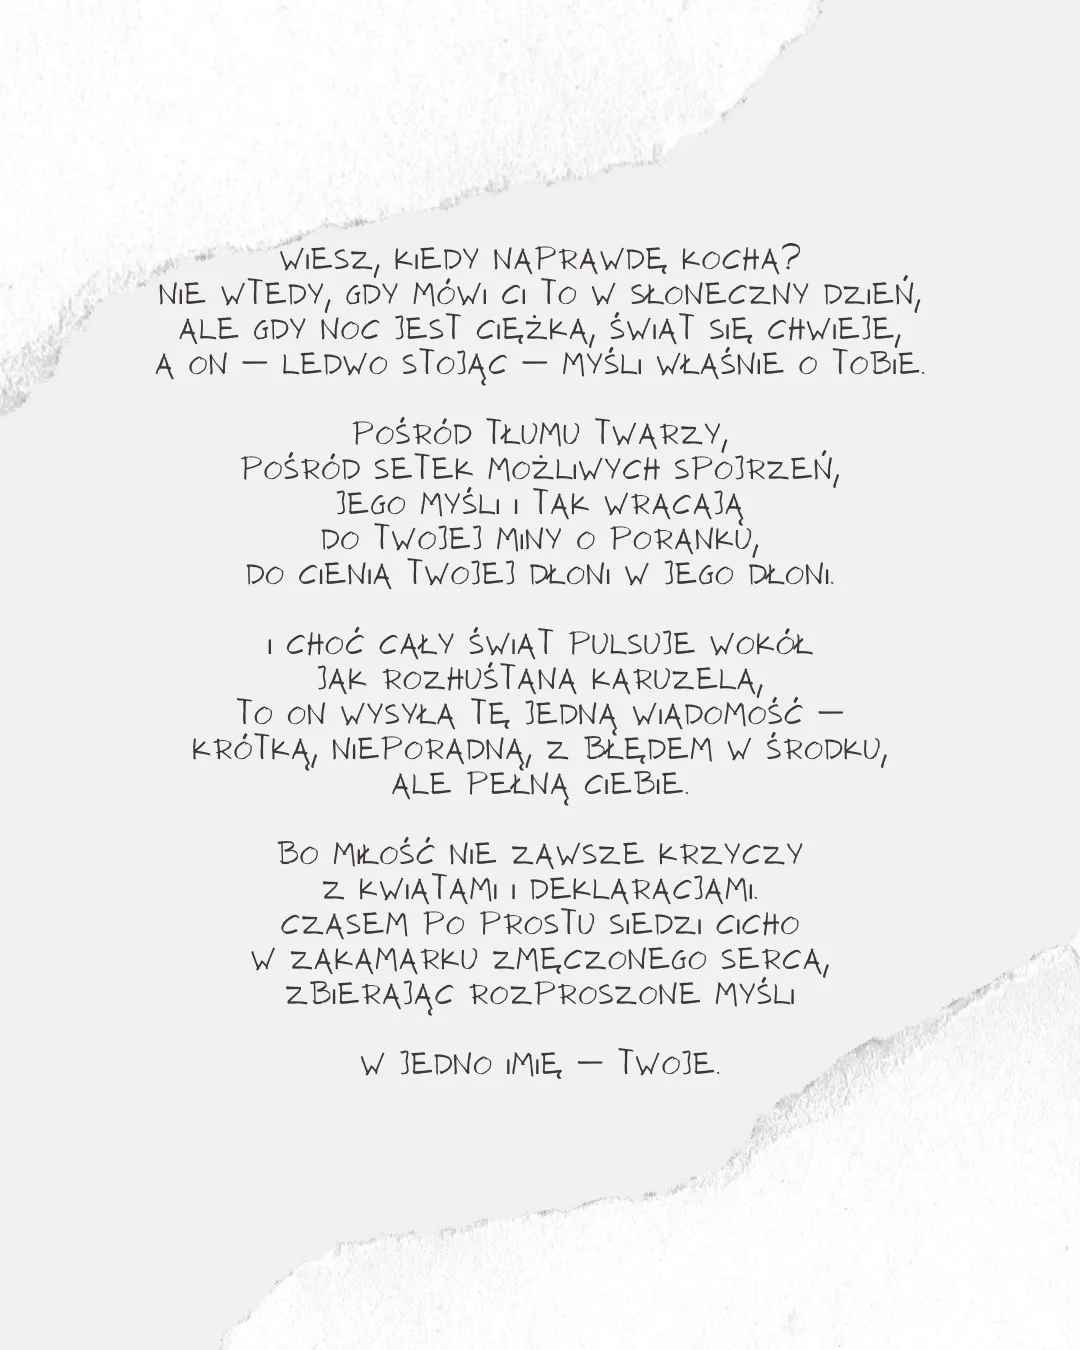 WIESZ, KIEDY NAPRAWDĘ KOCHA?
NIE WTEDY, GDY MÓWI CI TO W SŁONECZNY DZIEŃ,
ALE GDY NOC JEST CIĘŻKA, ŚWIAT SIĘ CHWIEJE,
A ON – LEDWO STOJĄC – MYŚLI WŁAŚNIE O TOBIE.

POŚRÓD TŁUMU TWARZY,
POŚRÓD SETEK MOŻLIWYCH SPOJRZEŃ,
JEGO MYŚLI I TAK WRACAJĄ
DO TWOJEJ MINY O PORANKU,
DO CIENIA TWOJEJ DŁONI W JEGO DŁONI.

I CHOĆ CAŁY ŚWIAT PULSUJE WOKÓŁ
JAK ROZHUŚTANA KARUZELA,
TO ON WYSYŁA TĘ JEDNĄ WIADOMOŚĆ –
KRÓTKĄ, NIEPORADNĄ, Z BŁĘDEM W ŚRODKU,
ALE PEŁNĄ CIEBIE.

BO MIŁOŚĆ NIE ZAWSZE KRZYCZY
Z KWIATAMI I DEKLARACJAMI.
CZASEM PO PROSTU SIEDZI CICHO
W ZAKAMARKU ZMĘCZONEGO SERCA,
ZBIERAJĄC ROZPROSZONE MYŚLI

W JEDNO IMIĘ – TWOJE.